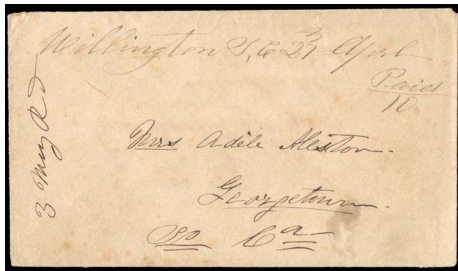 Willington S, C 27 April
Paid
10
Mrs Adele Alston.
Georgetown.
So Ca
3 May Rd